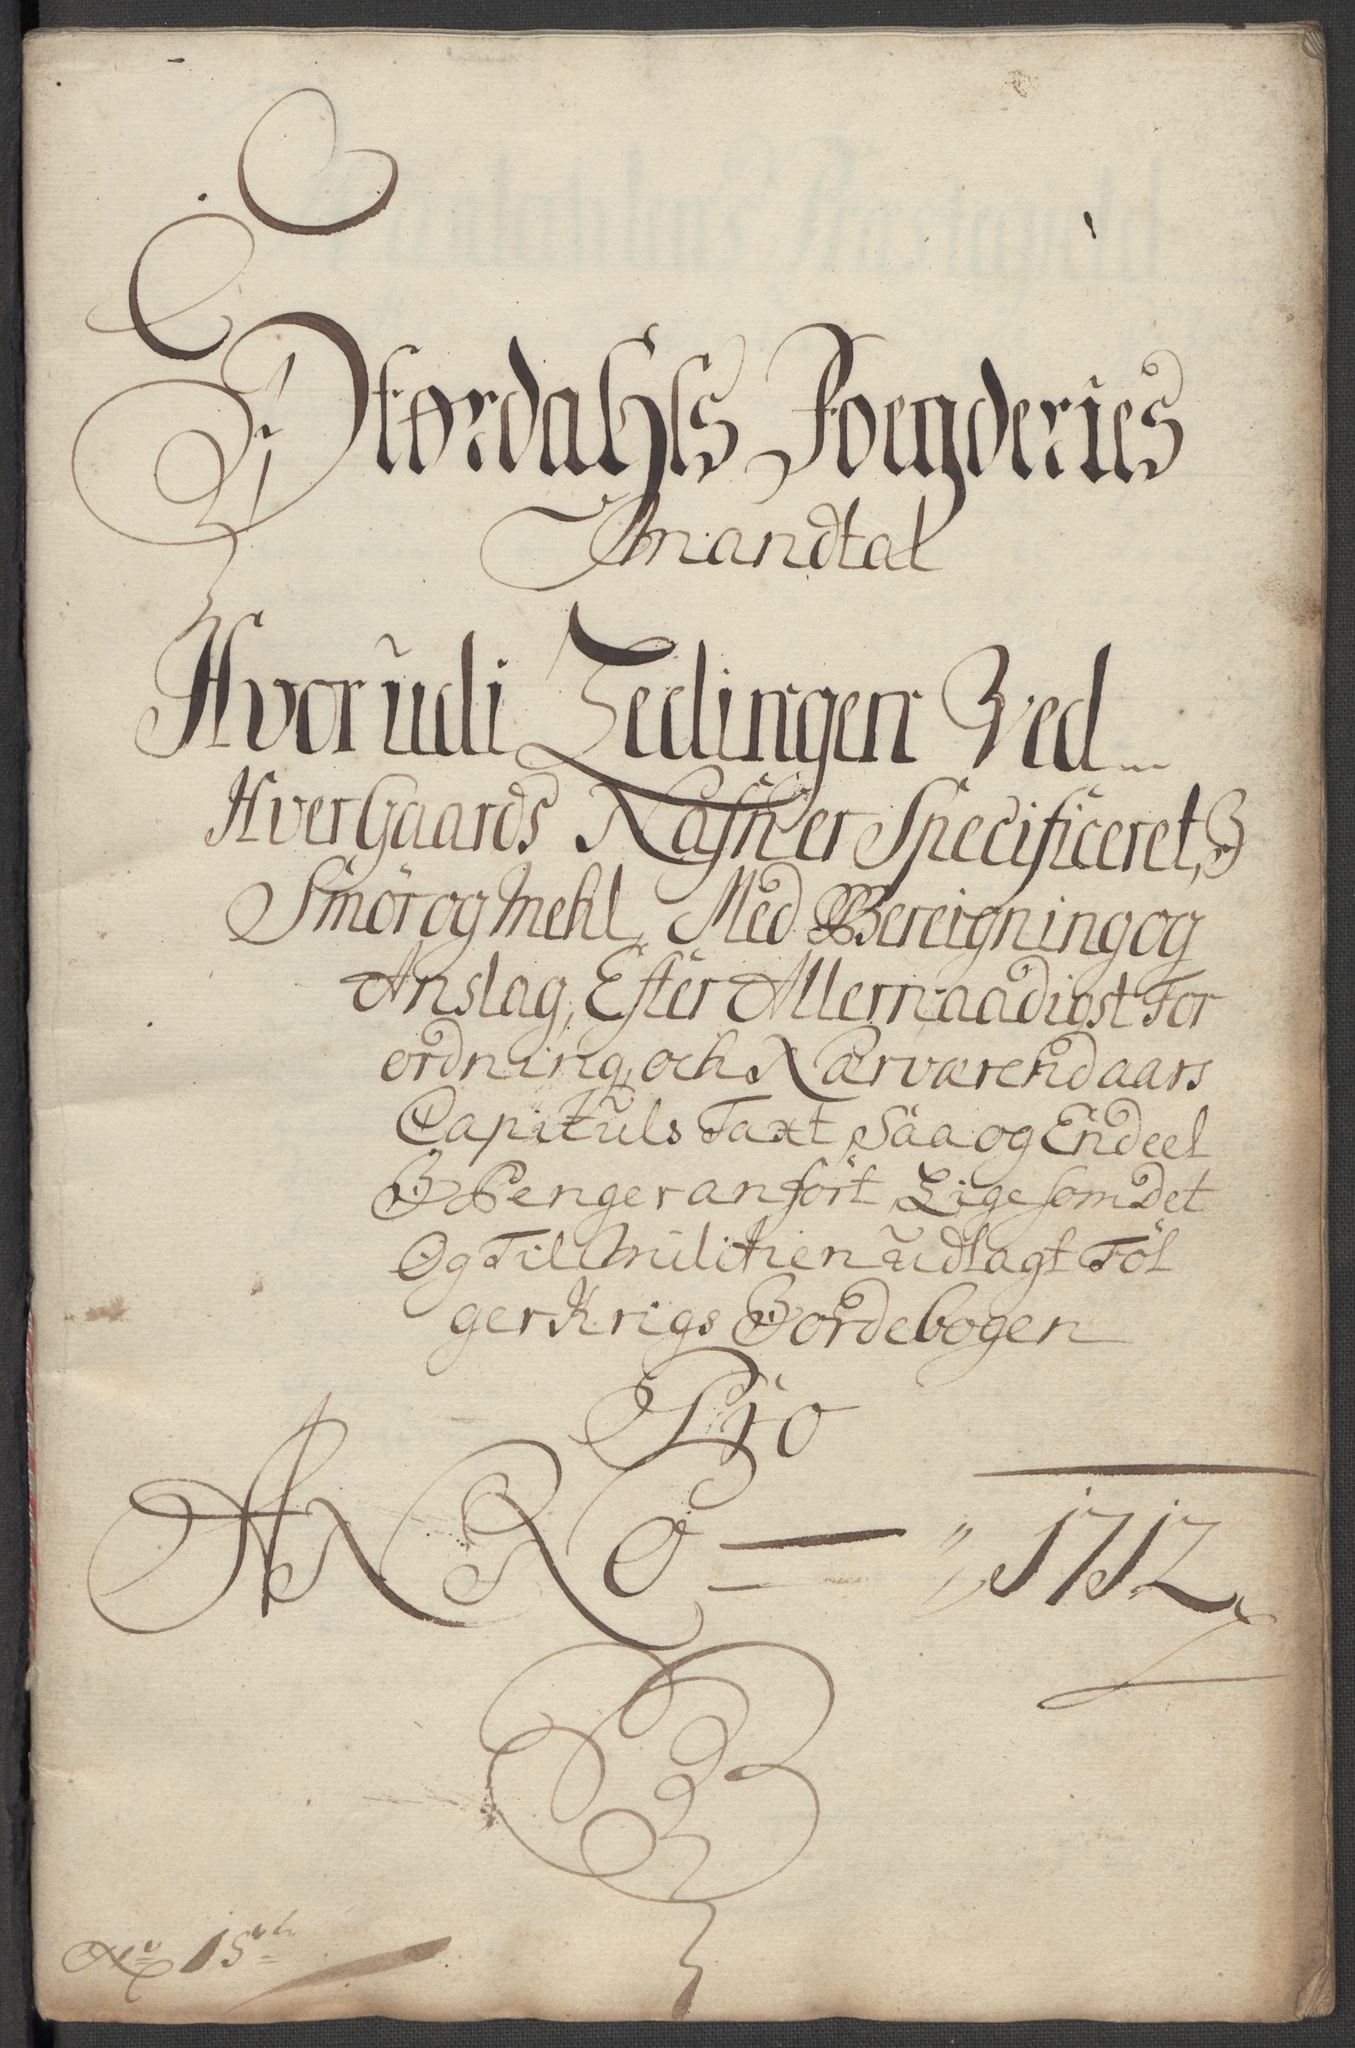 Størdahls Foegderies
Mandtal
Hvorüdi Ledingen Ved
Hver Gaards Nafn er Specificeret, J
Smör og Mehl, Med Bereigning og
Anslag, Efter Allernaadigst For
ordning, och Nærværend aars
Capituls Taxt, Saa og Endeel
J Penger anfört, Lige som det
Og Til Militien üdlagt Föl
ger Krigs Jordebogen
Pro
ANNO 1712
No 15